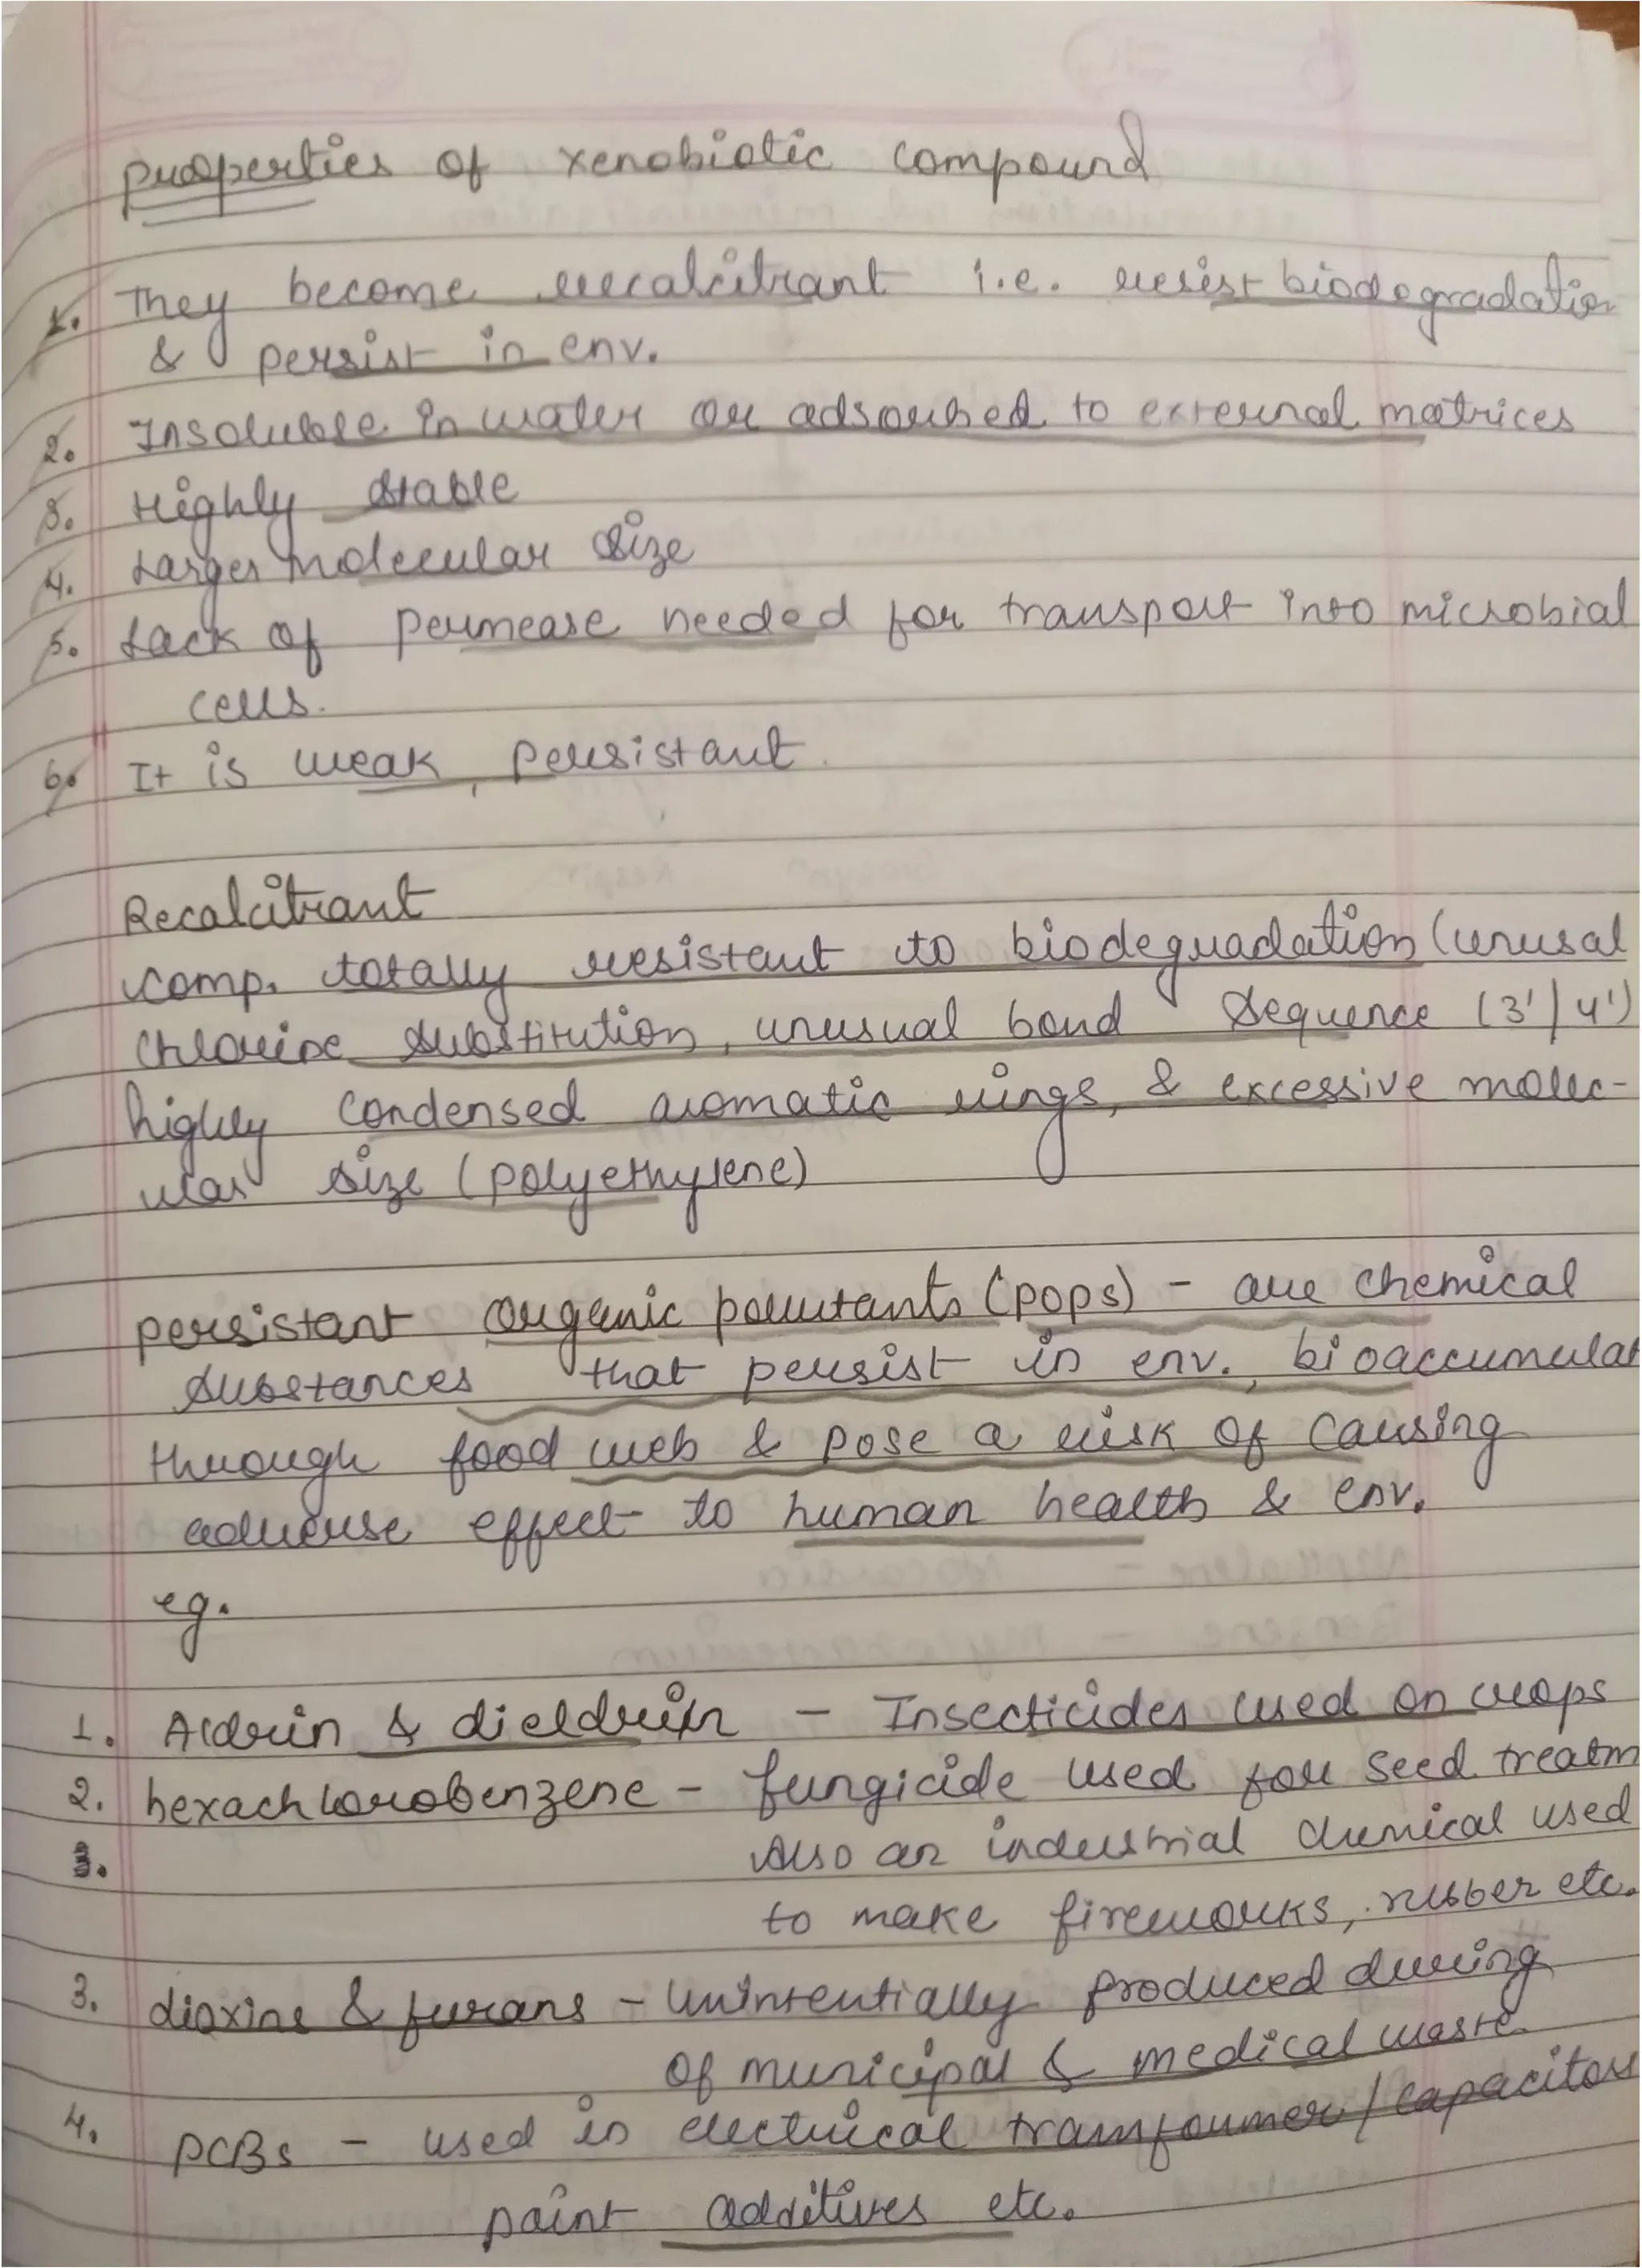 properties of xenobiotic compound
1. They become recalcitrant i.e. resist biodegradation
& persist in env.
2. Insoluble in water or adsorbed to external matrices
3. Highly stable
4. Larger molecular size
5. Lack of permease needed for transport into microbial
cells.
6. It is weak, persistant.
Recalcitrant
comp. totally resistant to biodegradation (unusal
chlorine substitution, unusual bond sequence (3'/4')
highly condensed aromatic rings, & excessive molec-
ular size (polyethylene)
persistant organic pollutants (pops) - are chemical
substances that persist in env., bioaccumulat
through food web & pose a risk of causing
adverse effect to human health & env.
eg.
1. Aldrin & dieldrin - Insecticides used on crops
2. hexachlorobenzene - fungicide used for seed treatm
3. Also an industrial chemical used
to make fireworks, rubber etc.
3. dioxins & furans - Unintentially produced during
of municipal & medical waste.
4. PCBs - used in electrical transformer/capacitor
paint additives etc.